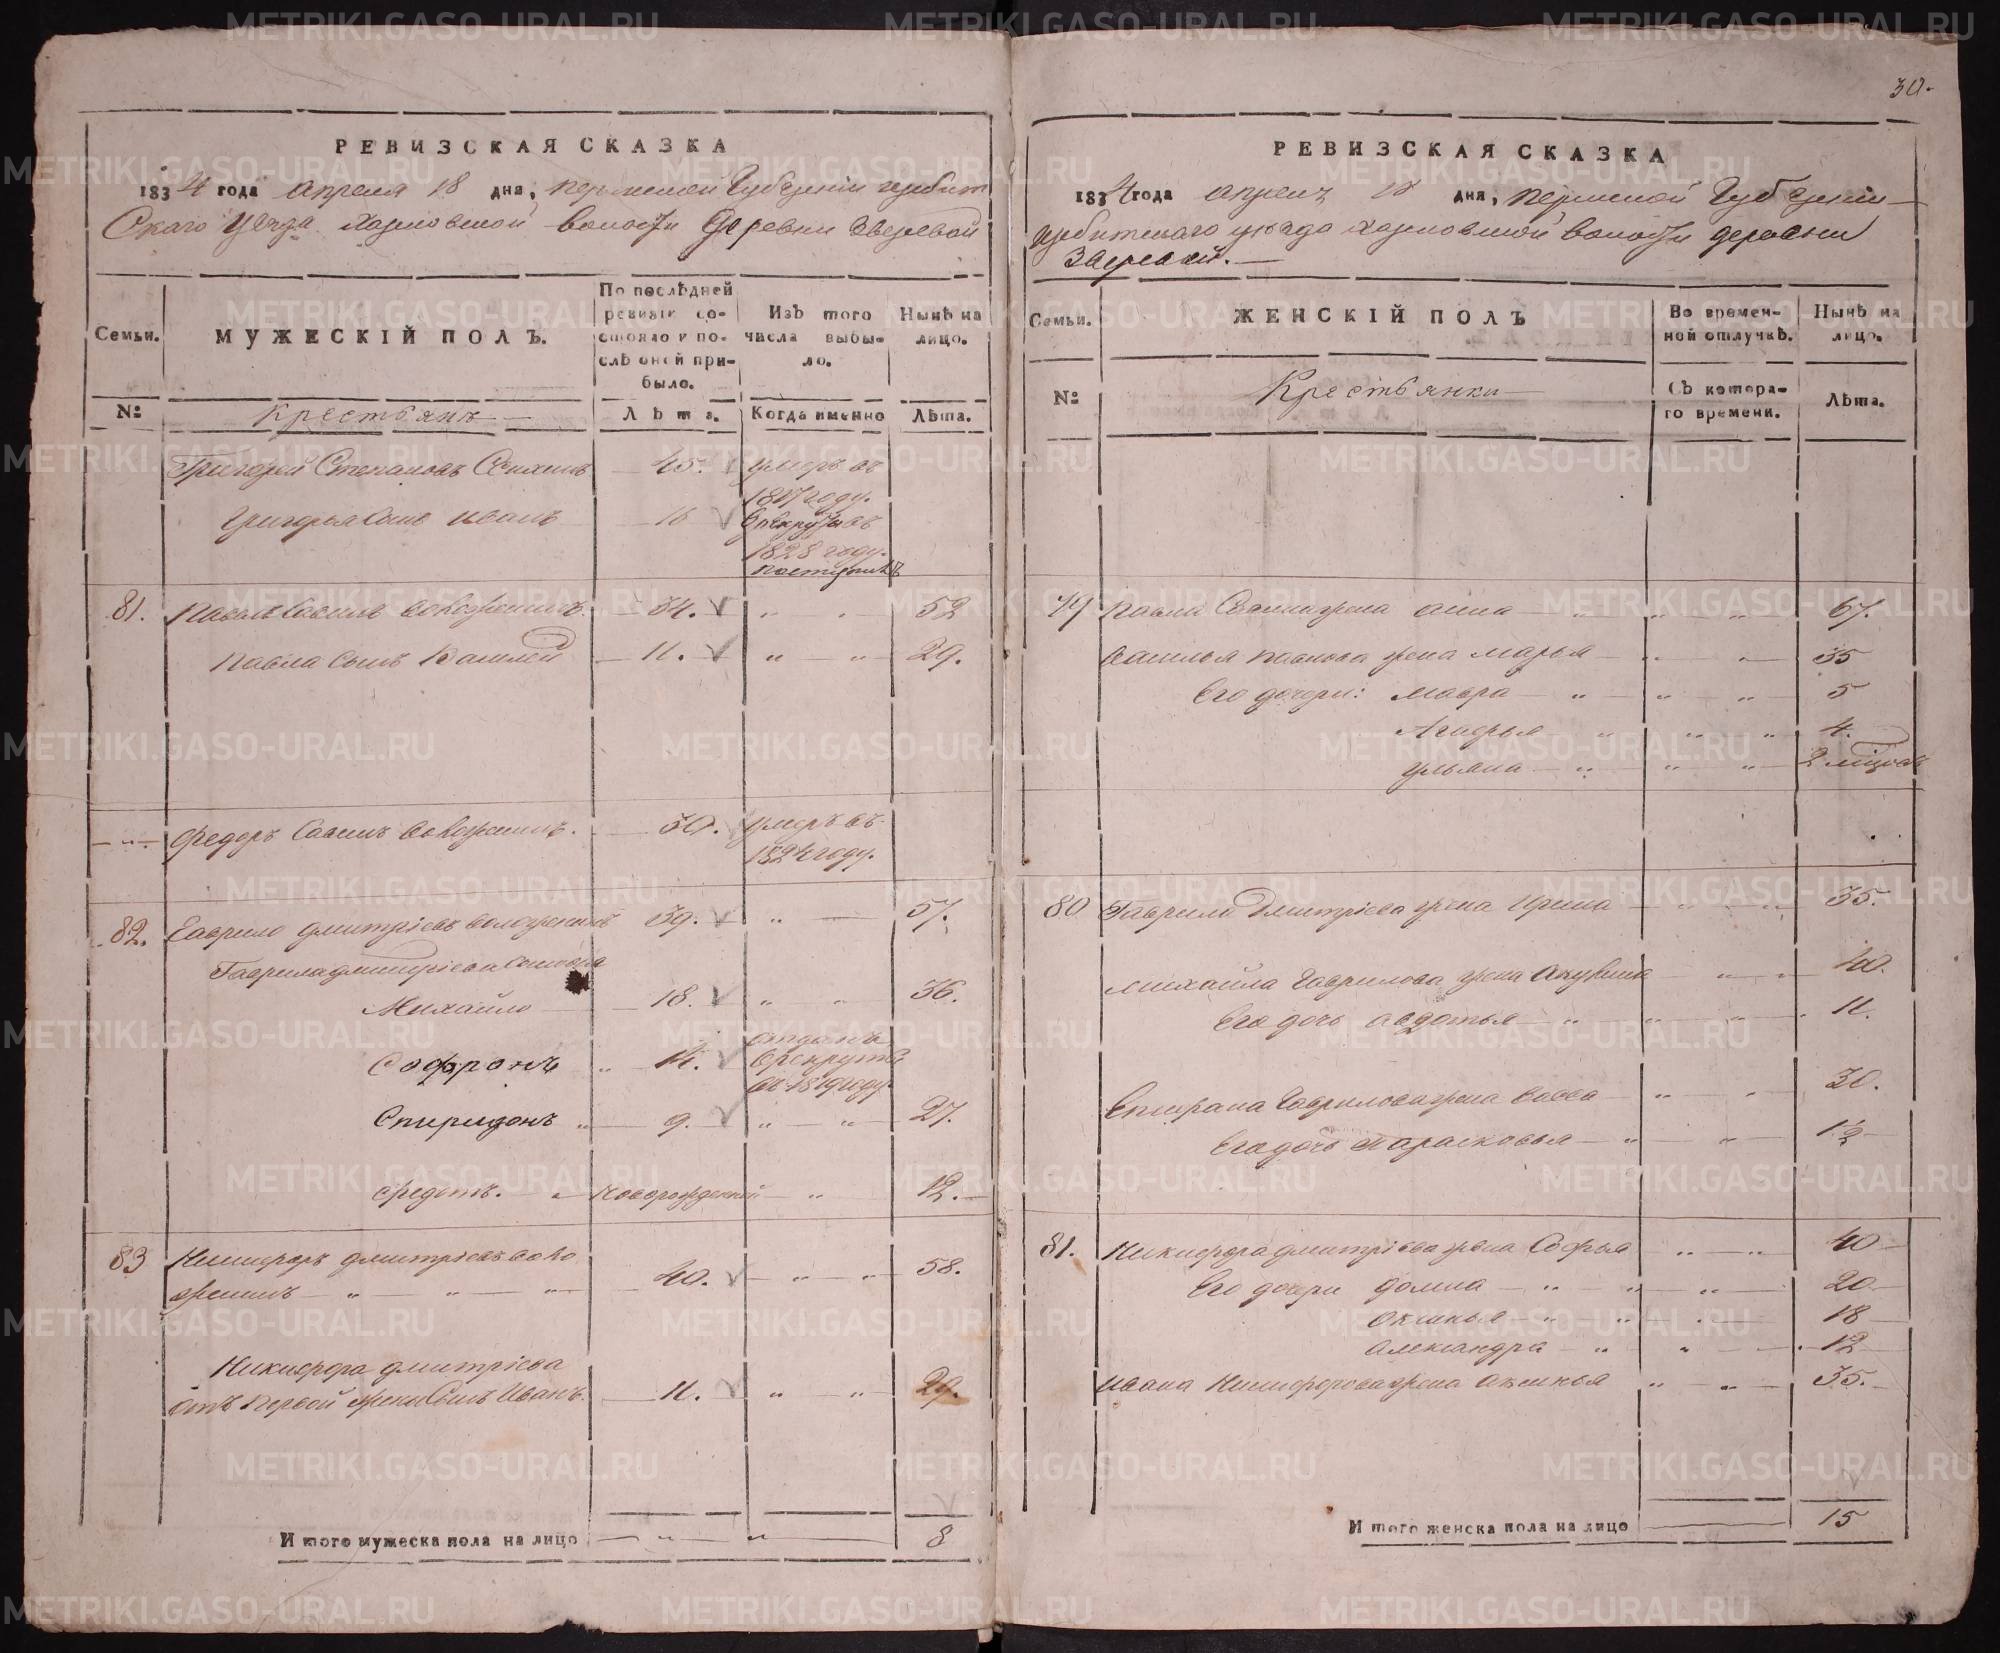 30.
РЕВИЗСКАЯ СКАЗКА
1834 года апреля 18 дня, пермской Губернии ирбит
Скаго Уезда харловской волости Деревни Зверевой
Семьи.
МУЖЕСКІЙ ПОЛЪ.
По послѣдней
ревизіи со-
стояло и по-
слѣ оной при-
было.
Изъ того
числа выбы-
ло.
Нынѣ на
лицо.
№
Крестьянъ
Лѣта.
Когда именно
Лѣта.
Григорей Степановъ
45.
умеръ въ
1817 году.
Григорья Сынъ иванъ
16
в рекруты въ
1828 году.
поступилъ
81.
54.
52
Павла Сынъ Василей
11.
29.
Федоръ Савинъ
50.
умеръ въ
1824 году.
82.
Гаврило дмитріевъ
39.
57.
Гаврила дмитріева Сыновья
Михайло
18.
36.
Софронъ
14.
отданъ
в рекруты
въ 1819 году
Спиридонъ
9.
27.
Федотъ.
новорожденной
12.
83
Никифоръ дмитріевъ
40.
58.
Никифора дмитріева
отъ первой жены Сынъ Иванъ.
11.
29.
Итого мужеска пола на лицо
8
РЕВИЗСКАЯ СКАЗКА
1834 года апреля 18 дня, пермской Губерніи
ирбитскаго уезда харловской волости деревни
Зверевой.
Семьи.
ЖЕНСКІЙ ПОЛЪ
Во времен-
ной отлучкѣ.
Нынѣ на
лицо.
№
Крестьянки
Съ котора-
го времени.
Лѣта.
79
Павла Савина жена анна
67.
Василья павлова жена марья
35
Его дочери: мавра
5
Агафья
4.
ульяна
2 месяцовъ
80
Гаврила Дмитріева жена Ирина
35.
михайла Гаврилова жена Акулина
40.
Его дочь авдотья
11.
Спирідона Гаврилова жена васса
30.
Его дочь Парасковья
12
81.
Никифора дмитріева жена Софья
40
Его дочери домна
20
Аксинья
18
Александра
12
Ивана Никифорова жена Аксинья
35.
Итого женска пола на лицо
15
METRIKI.GASO-URAL.RU